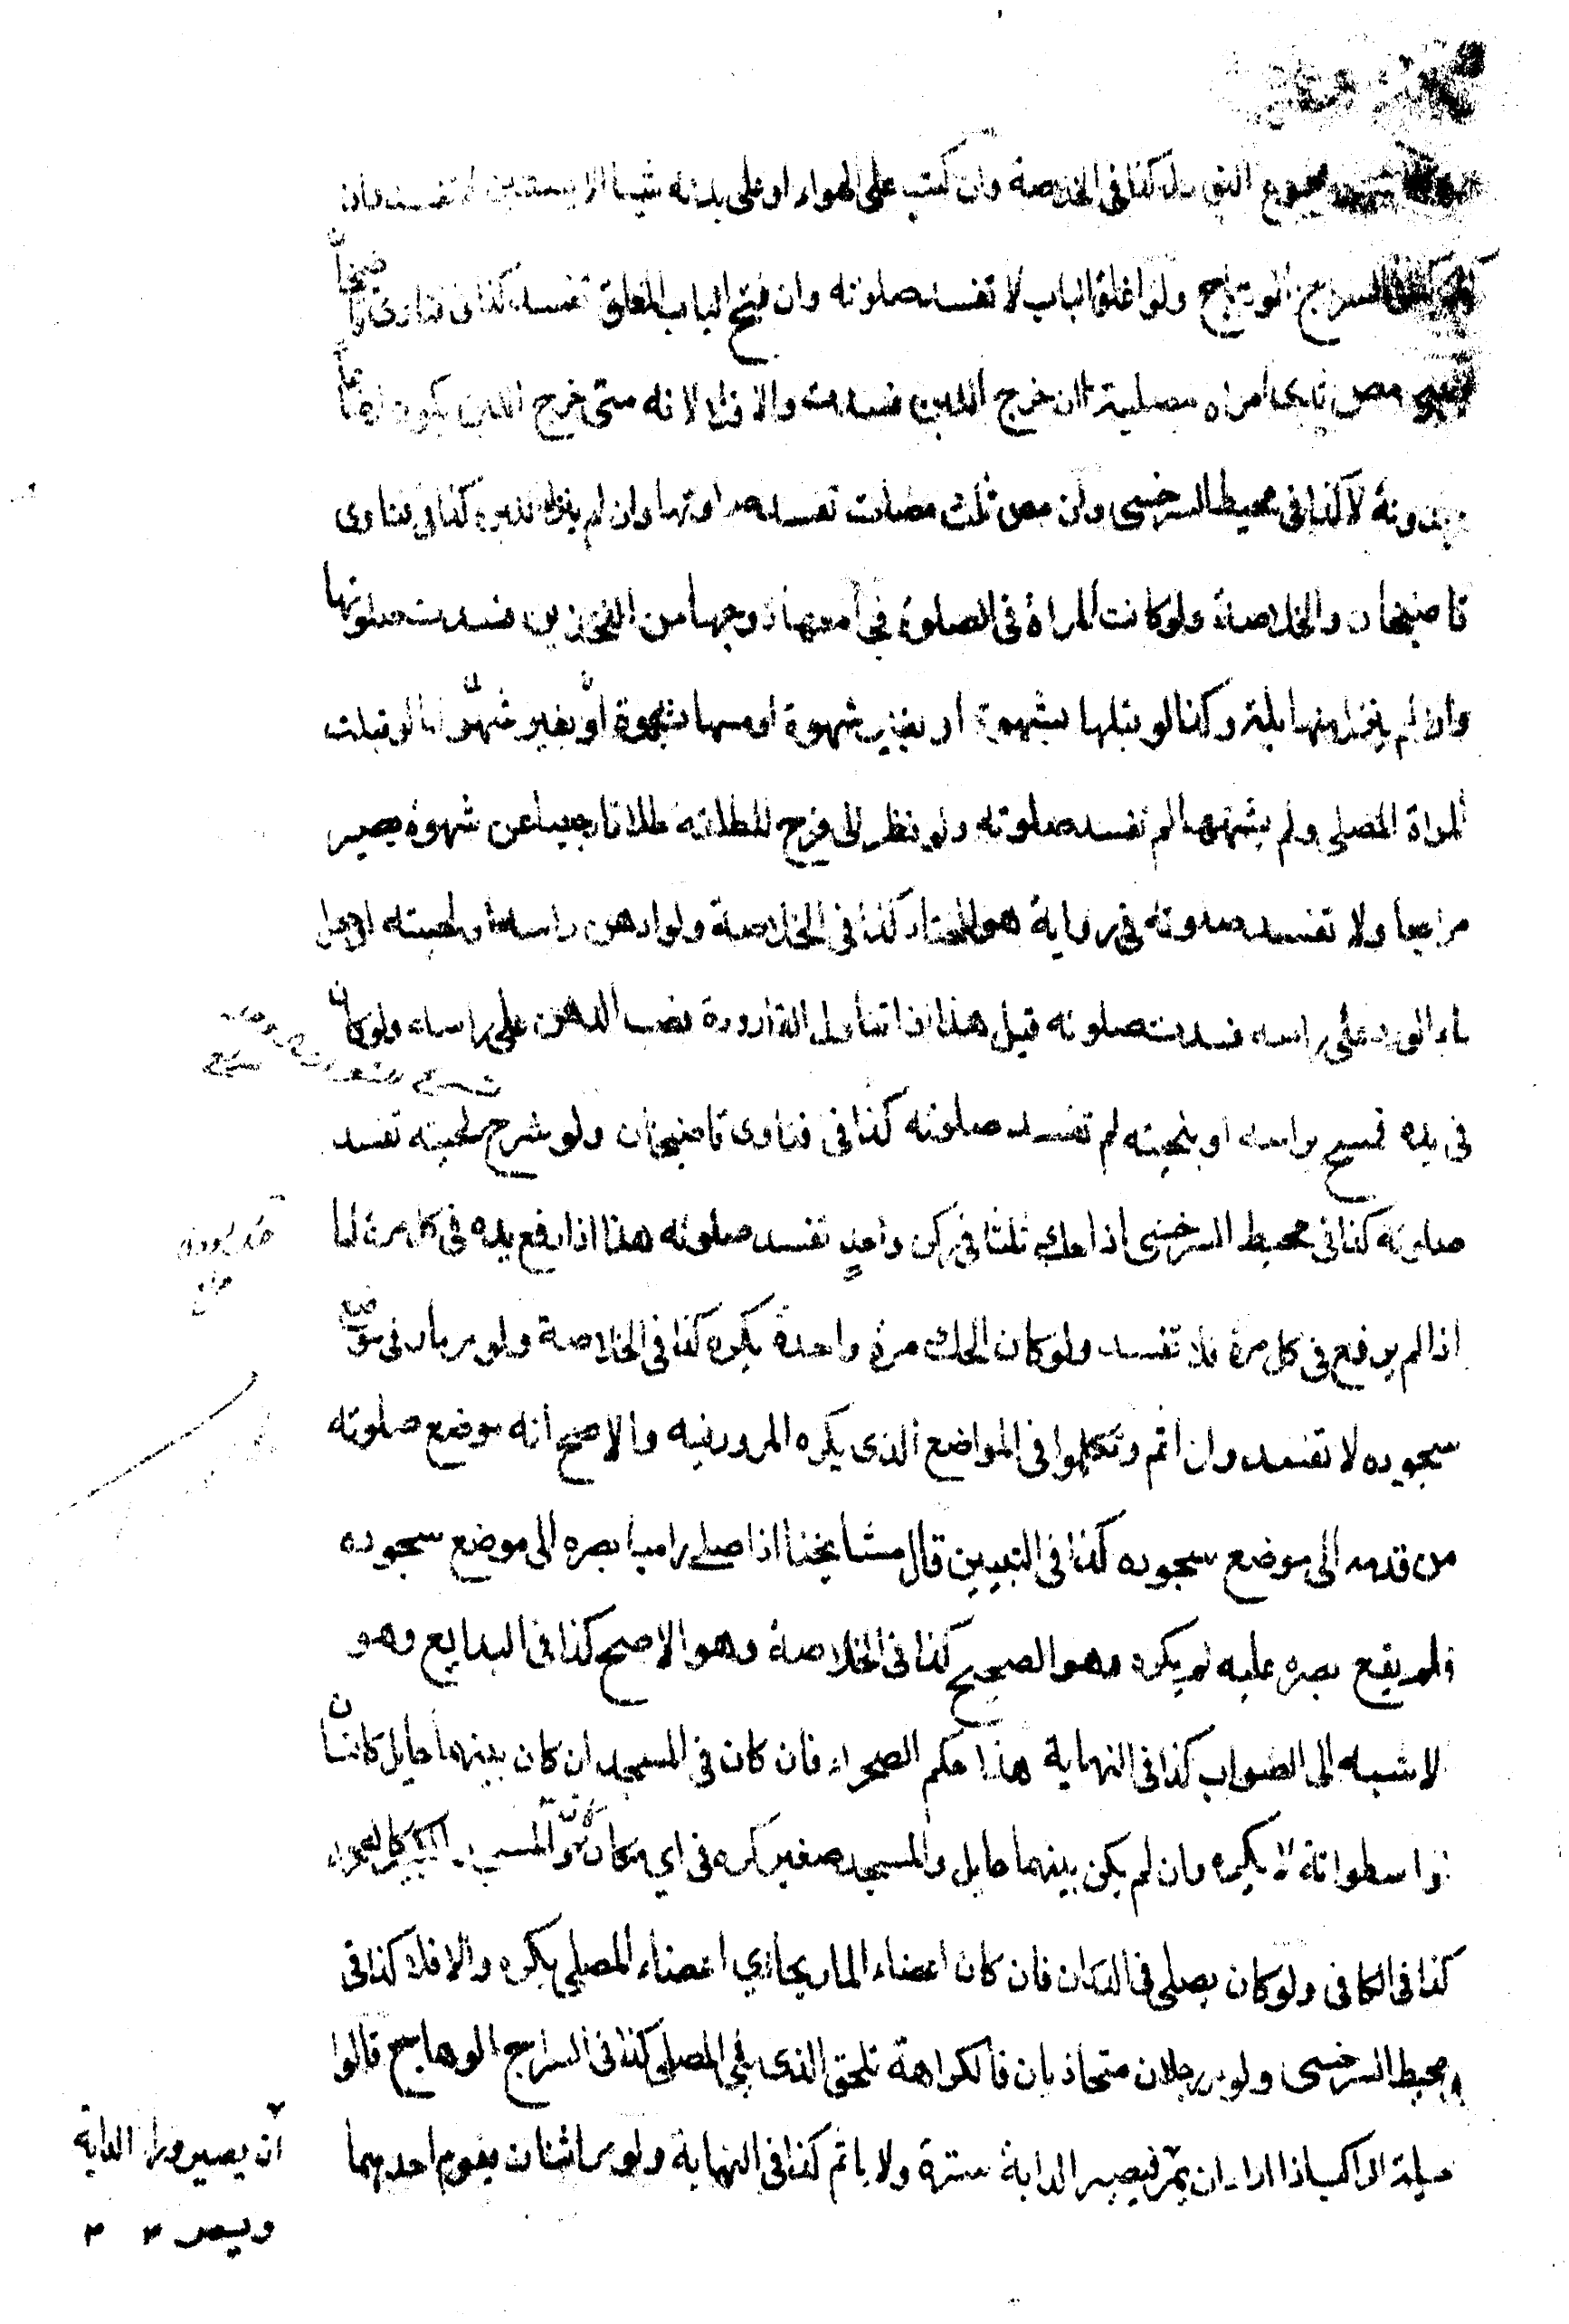 مجموع كذا في الخلاصة وان كتب على الهواء او على بدنه شيا لا يستبين لا تفسد وان
السراج الوهاج ولو اغلق الباب لا تفسد صلوته وان فتح الباب المغلق تفسد كذا في فتاوى قاضيخان
مص ثدى امراة مصلية ان خرج اللبن فسدت والا فلا لانه متى خرج اللبن يكون ارضاعا
وبدونه لا كذا في محيط السرخسى وان مص ثلث مصات تفسد صلوتها وان لم ينزل لبن كذا في فتاوى
قاضيخان والخلاصة ولو كانت المراة في الصلوة فجامعها زوجها من الفخذين فسدت صلوتها
وان لم ينزل منها بلة وكذا لو قبلها بشهوة او بغير شهوة او مسها بشهوة او بغير شهوة اما لو قبلت
المراة المصلى ولم يشتهها لم تفسد صلوته ولو نظر الى فرج المطلقة طلاقا رجعيا عن شهوة يصير
مراجعا ولا تفسد صلوته في رواية هو المختار كذا في الخلاصة ولو ادهن راسه او لحيته او جعل
ماء الورد على راسه فسدت صلوته قيل هذا اذا تناول القارورة فصب الدهن على راسه ولو كان
في يده فمسح براسه او بلحيته لم تفسد صلوته كذا في فتاوى قاضيخان ولو سرح لحيته تفسد
صلوته كذا في محيط السرخسى اذا حك ثلثا في ركن واحد تفسد صلوته هذا اذا رفع يده في كل مرة اما
اذا لم يرفع في كل مرة فلا تفسد ولو كان الحك مرة واحدة يكره كذا في الخلاصة ولو مر مار في موضع
سجوده لا تفسد وان اثم وتكلموا في المواضع الذى يكره المرور فيه والاصح انه موضع صلوته
من قدمه الى موضع سجوده كذا في التبيين قال مشايخنا اذا صلى راميا بصره الى موضع سجوده
فلم يقع بصره عليه لم يكره وهو الصحيح كذا في الخلاصة وهو الاصح كذا في البدايع وهو
الاشبه الى الصواب كذا في النهاية هذا حكم الصحراء فان كان في المسجد ان كان بينهما حايل كانسان
او اسطوانة لا يكره وان لم يكن بينهما حايل والمسجد صغير كره في اي مكان كان والمسجد الكبير كالصحراء
كذا في الكافى ولو كان يصلى في الدكان فان كان اعضاء المار يحاذي اعضاء المصلى يكره والا فلا كذا في
محيط السرخسى ولو مر رجلان متحاذيان فالكراهة تلحق الذى يلى المصلى كذا في السراج الوهاج قالوا
حيلة الراكب اذا اراد ان يمر فيصير الدابة سترة ولا ياثم كذا في النهاية ولو مر اثنان يقوم احدهما
ان يصير وراء الدابة
ويمر